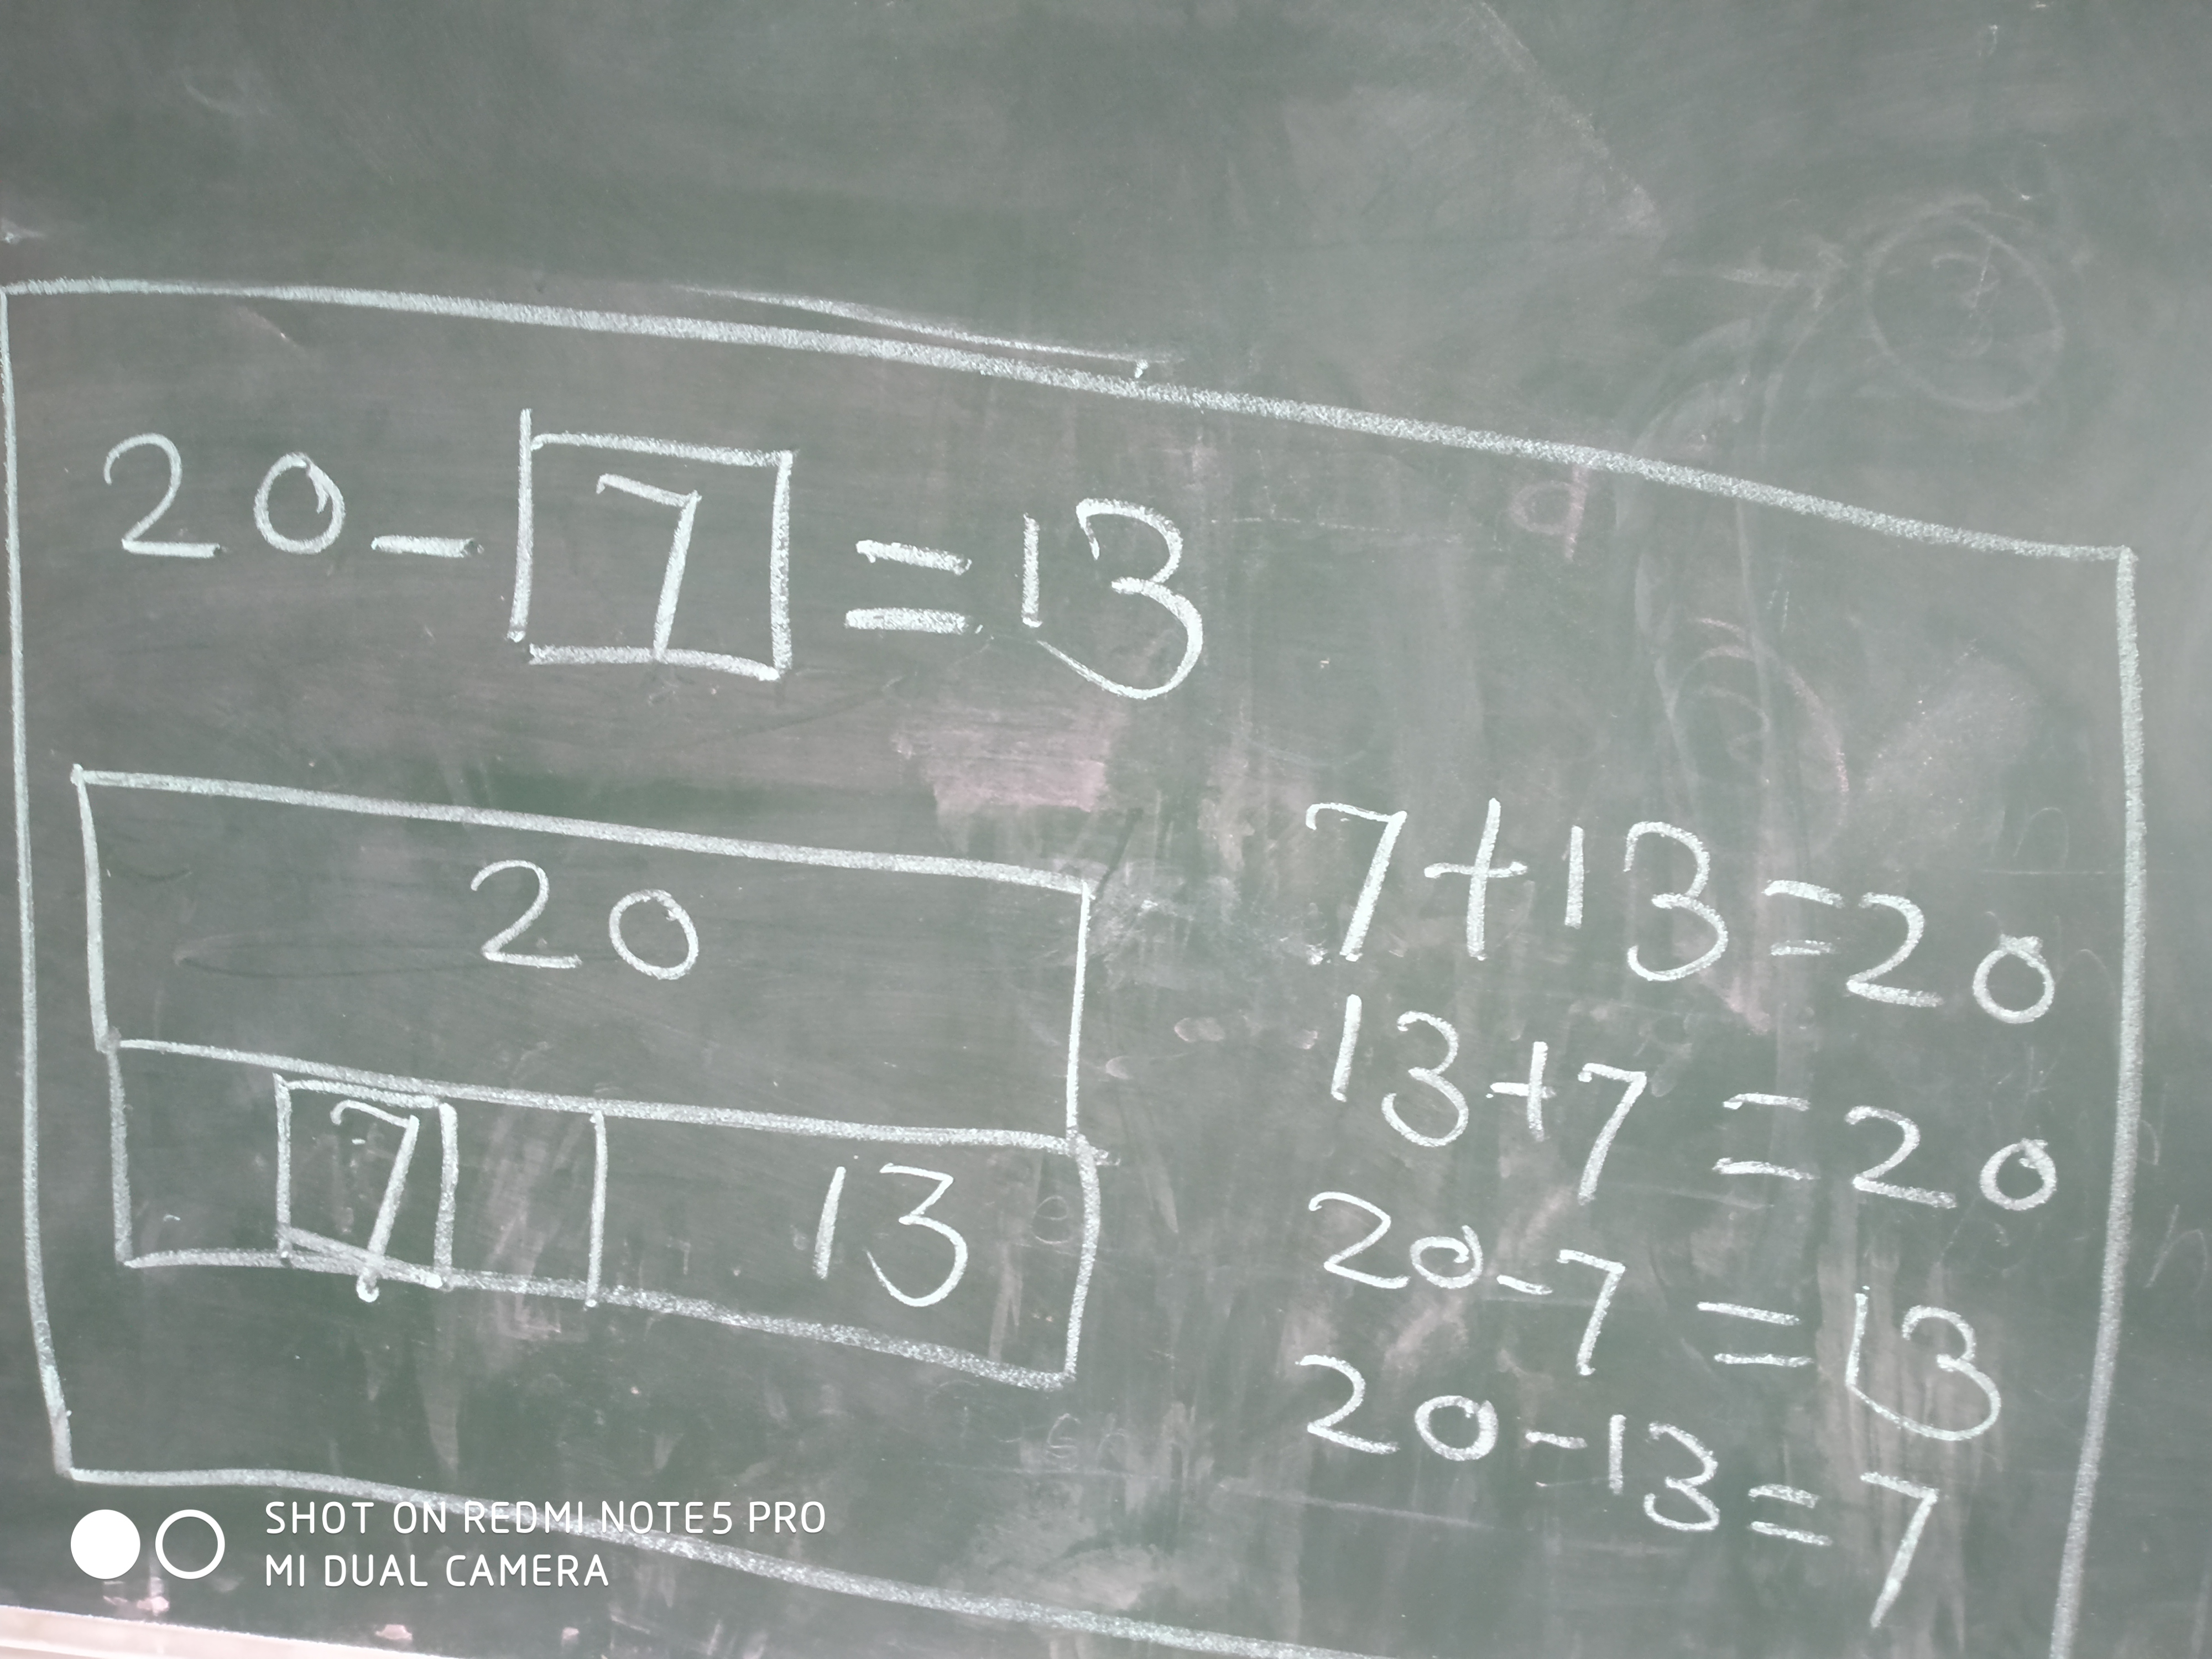 20 - 7 = 13
20
7 13
7 + 13 = 20
13 + 7 = 20
20 - 7 = 13
20 - 13 = 7
SHOT ON REDMI NOTE5 PRO
MI DUAL CAMERA